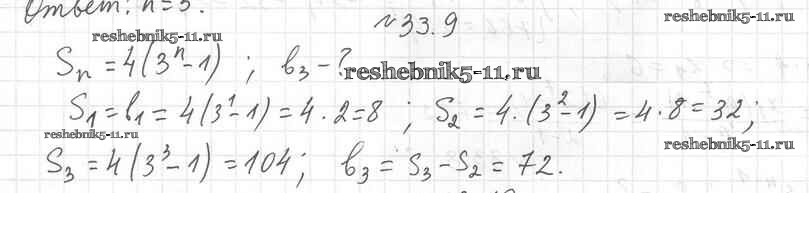 Ответ: n=5.
№33.9
reshebnik5-11.ru
reshebnik5-11.ru
Sₙ = 4(3ⁿ-1) ; b₃ - ?
reshebnik5-11.ru
S₁ = b₁ = 4(3¹-1) = 4·2=8 ; S₂ = 4·(3²-1) = 4·8 = 32;
reshebnik5-11.ru
reshebnik5-11.ru
S₃ = 4(3³-1) = 104; b₃ = S₃ - S₂ = 72.